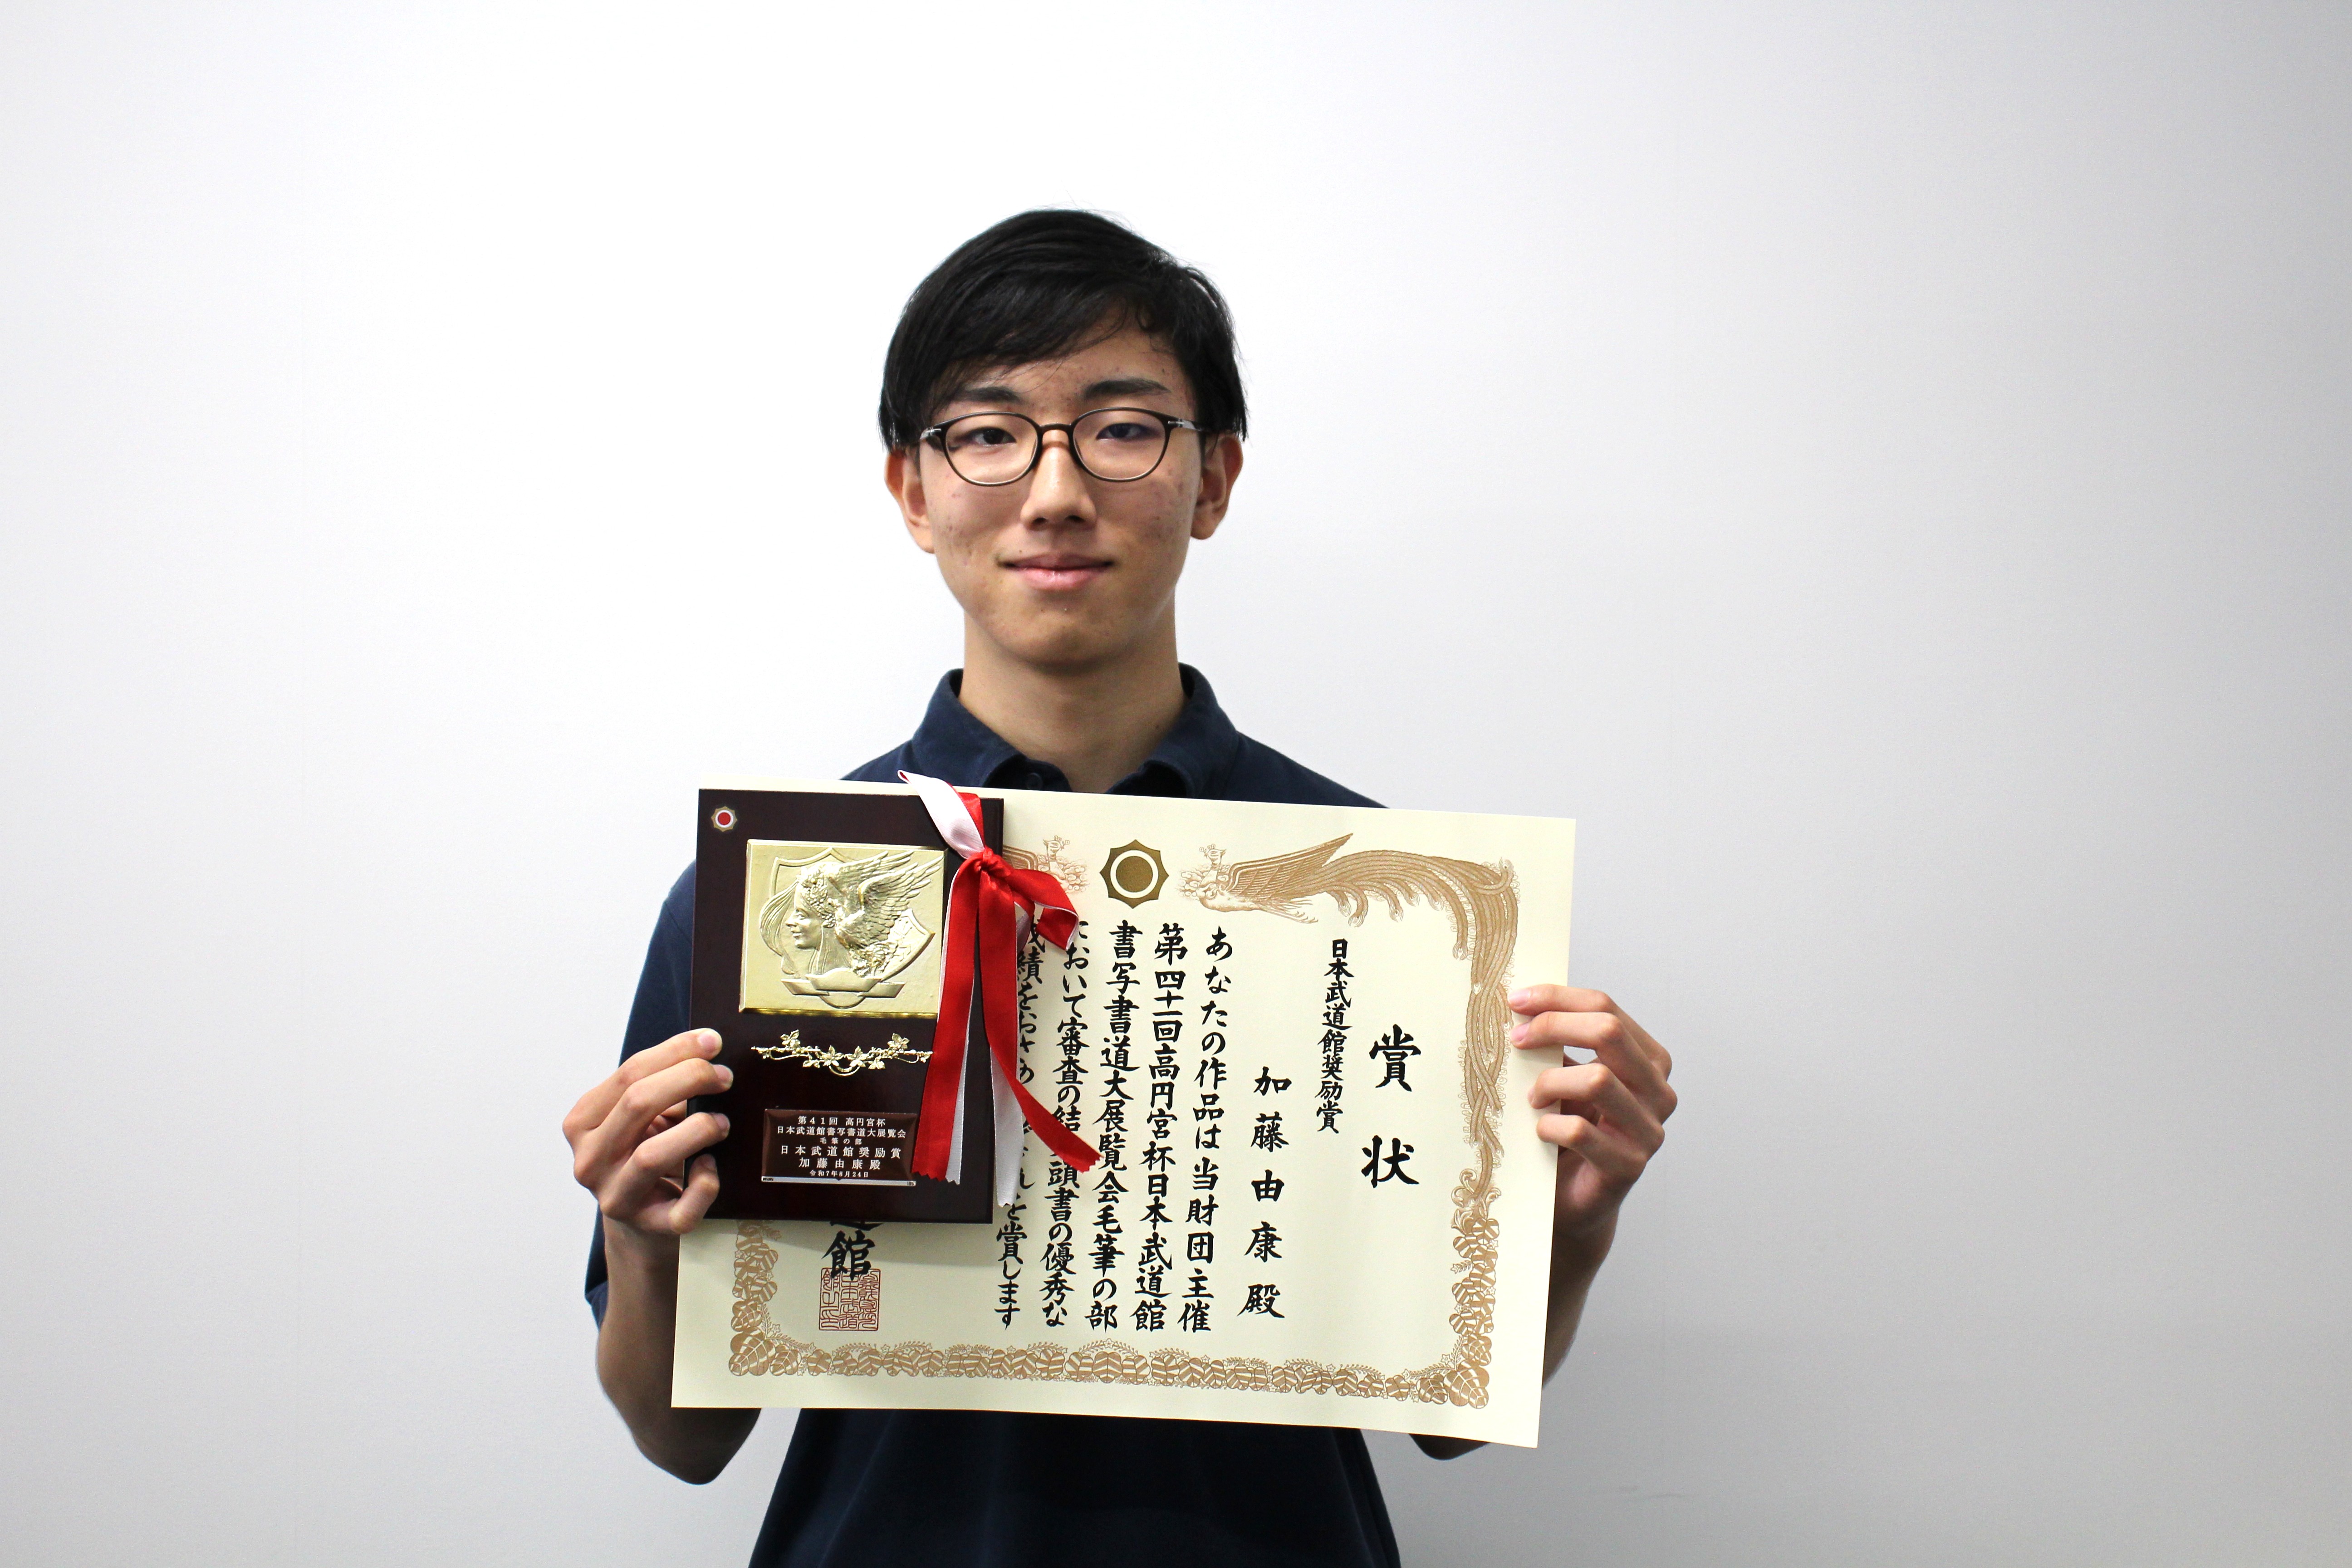 賞状
日本武道館奨励賞
加藤由康殿
あなたの作品は当財団主催
第四十一回高円宮杯日本武道館
書写書道大展覧会毛筆の部
において審査の結 頭書の優秀な
成績をおさめ を賞します
館
第41回 高円宮杯
日本武道館書写書道大展覧会
毛筆の部
日本武道館奨励賞
加藤由康殿
令和7年8月24日